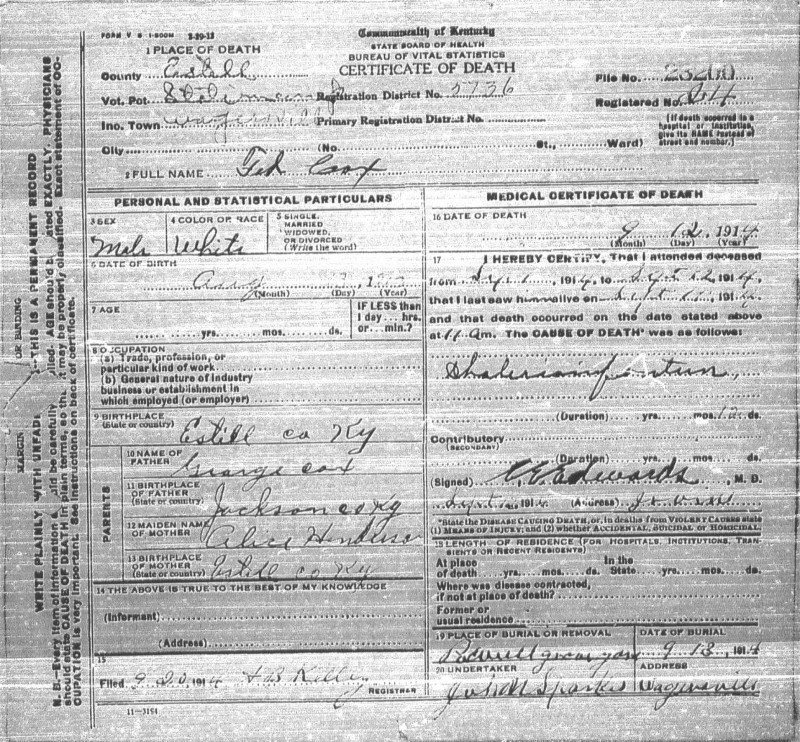 FORM V S 1-500M 3-29-13
Commonwealth of Kentucky
STATE BOARD OF HEALTH
BUREAU OF VITAL STATISTICS
CERTIFICATE OF DEATH
1 PLACE OF DEATH
County Estill
File No. 23200
Vot. Pct. Registration District No. 5736
Registered No.
Inc. Town Primary Registration District No.
City (No. St., Ward)
[If death occurred in a hospital or institution, give its NAME instead of street and number.]
2 FULL NAME Ted Cox
PERSONAL AND STATISTICAL PARTICULARS
3 SEX
Male
4 COLOR OR RACE
White
5 SINGLE, MARRIED WIDOWED, OR DIVORCED (Write the word)
6 DATE OF BIRTH
Aug
(Month) (Day) (Year)
7 AGE
yrs. mos. ds.
IF LESS than 1 day ... hrs. or ... min.?
8 OCCUPATION
(a) Trade, profession, or particular kind of work
(b) General nature of industry business or establishment in which employed (or employer)
9 BIRTHPLACE
(State or country)
Estill co Ky
PARENTS
10 NAME OF FATHER
George Cox
11 BIRTHPLACE OF FATHER (State or country)
Jackson co Ky
12 MAIDEN NAME OF MOTHER
Alice Henderson
13 BIRTHPLACE OF MOTHER (State or country)
Estill co Ky
14 THE ABOVE IS TRUE TO THE BEST OF MY KNOWLEDGE
(Informant)
(Address)
15
Filed 9 1914
REGISTRAR
11-3184
MEDICAL CERTIFICATE OF DEATH
16 DATE OF DEATH
9 12, 1914
(Month) (Day) (Year)
17 I HEREBY CERTIFY, That I attended deceased
from Sept 1, 1914, to Sept 12, 1914,
that I last saw him alive on Sept 1914,
and that death occurred on the date stated above
at 11 am. The CAUSE OF DEATH* was as follows:
(Duration) yrs. mos. 12 ds.
Contributory
(SECONDARY)
(Duration) yrs. mos. ds.
(Signed) Edwards, M. D.
Sept 1914 (Address)
*State the DISEASE CAUSING DEATH, or, in deaths from VIOLENT CAUSES state (1) MEANS OF INJURY; and (2) whether ACCIDENTAL, SUICIDAL or HOMICIDAL.
18 LENGTH OF RESIDENCE (FOR HOSPITALS, INSTITUTIONS, TRANSIENTS OR RECENT RESIDENTS)
At place of death yrs. mos. ds. In the State yrs. mos. ds.
Where was disease contracted, if not at place of death?
Former or usual residence
19 PLACE OF BURIAL OR REMOVAL
DATE OF BURIAL
9 13, 1914
20 UNDERTAKER
ADDRESS
Sparks Wagersville
MARGIN FOR BINDING
WRITE PLAINLY WITH UNFADING THIS IS A PERMANENT RECORD
N. B.—Every item of information should be carefully supplied. AGE should be stated EXACTLY. PHYSICIANS
should state CAUSE OF DEATH in plain terms, so that it may be properly classified. Exact statement of OC-
CUPATION is very important. See instructions on back of certificate.